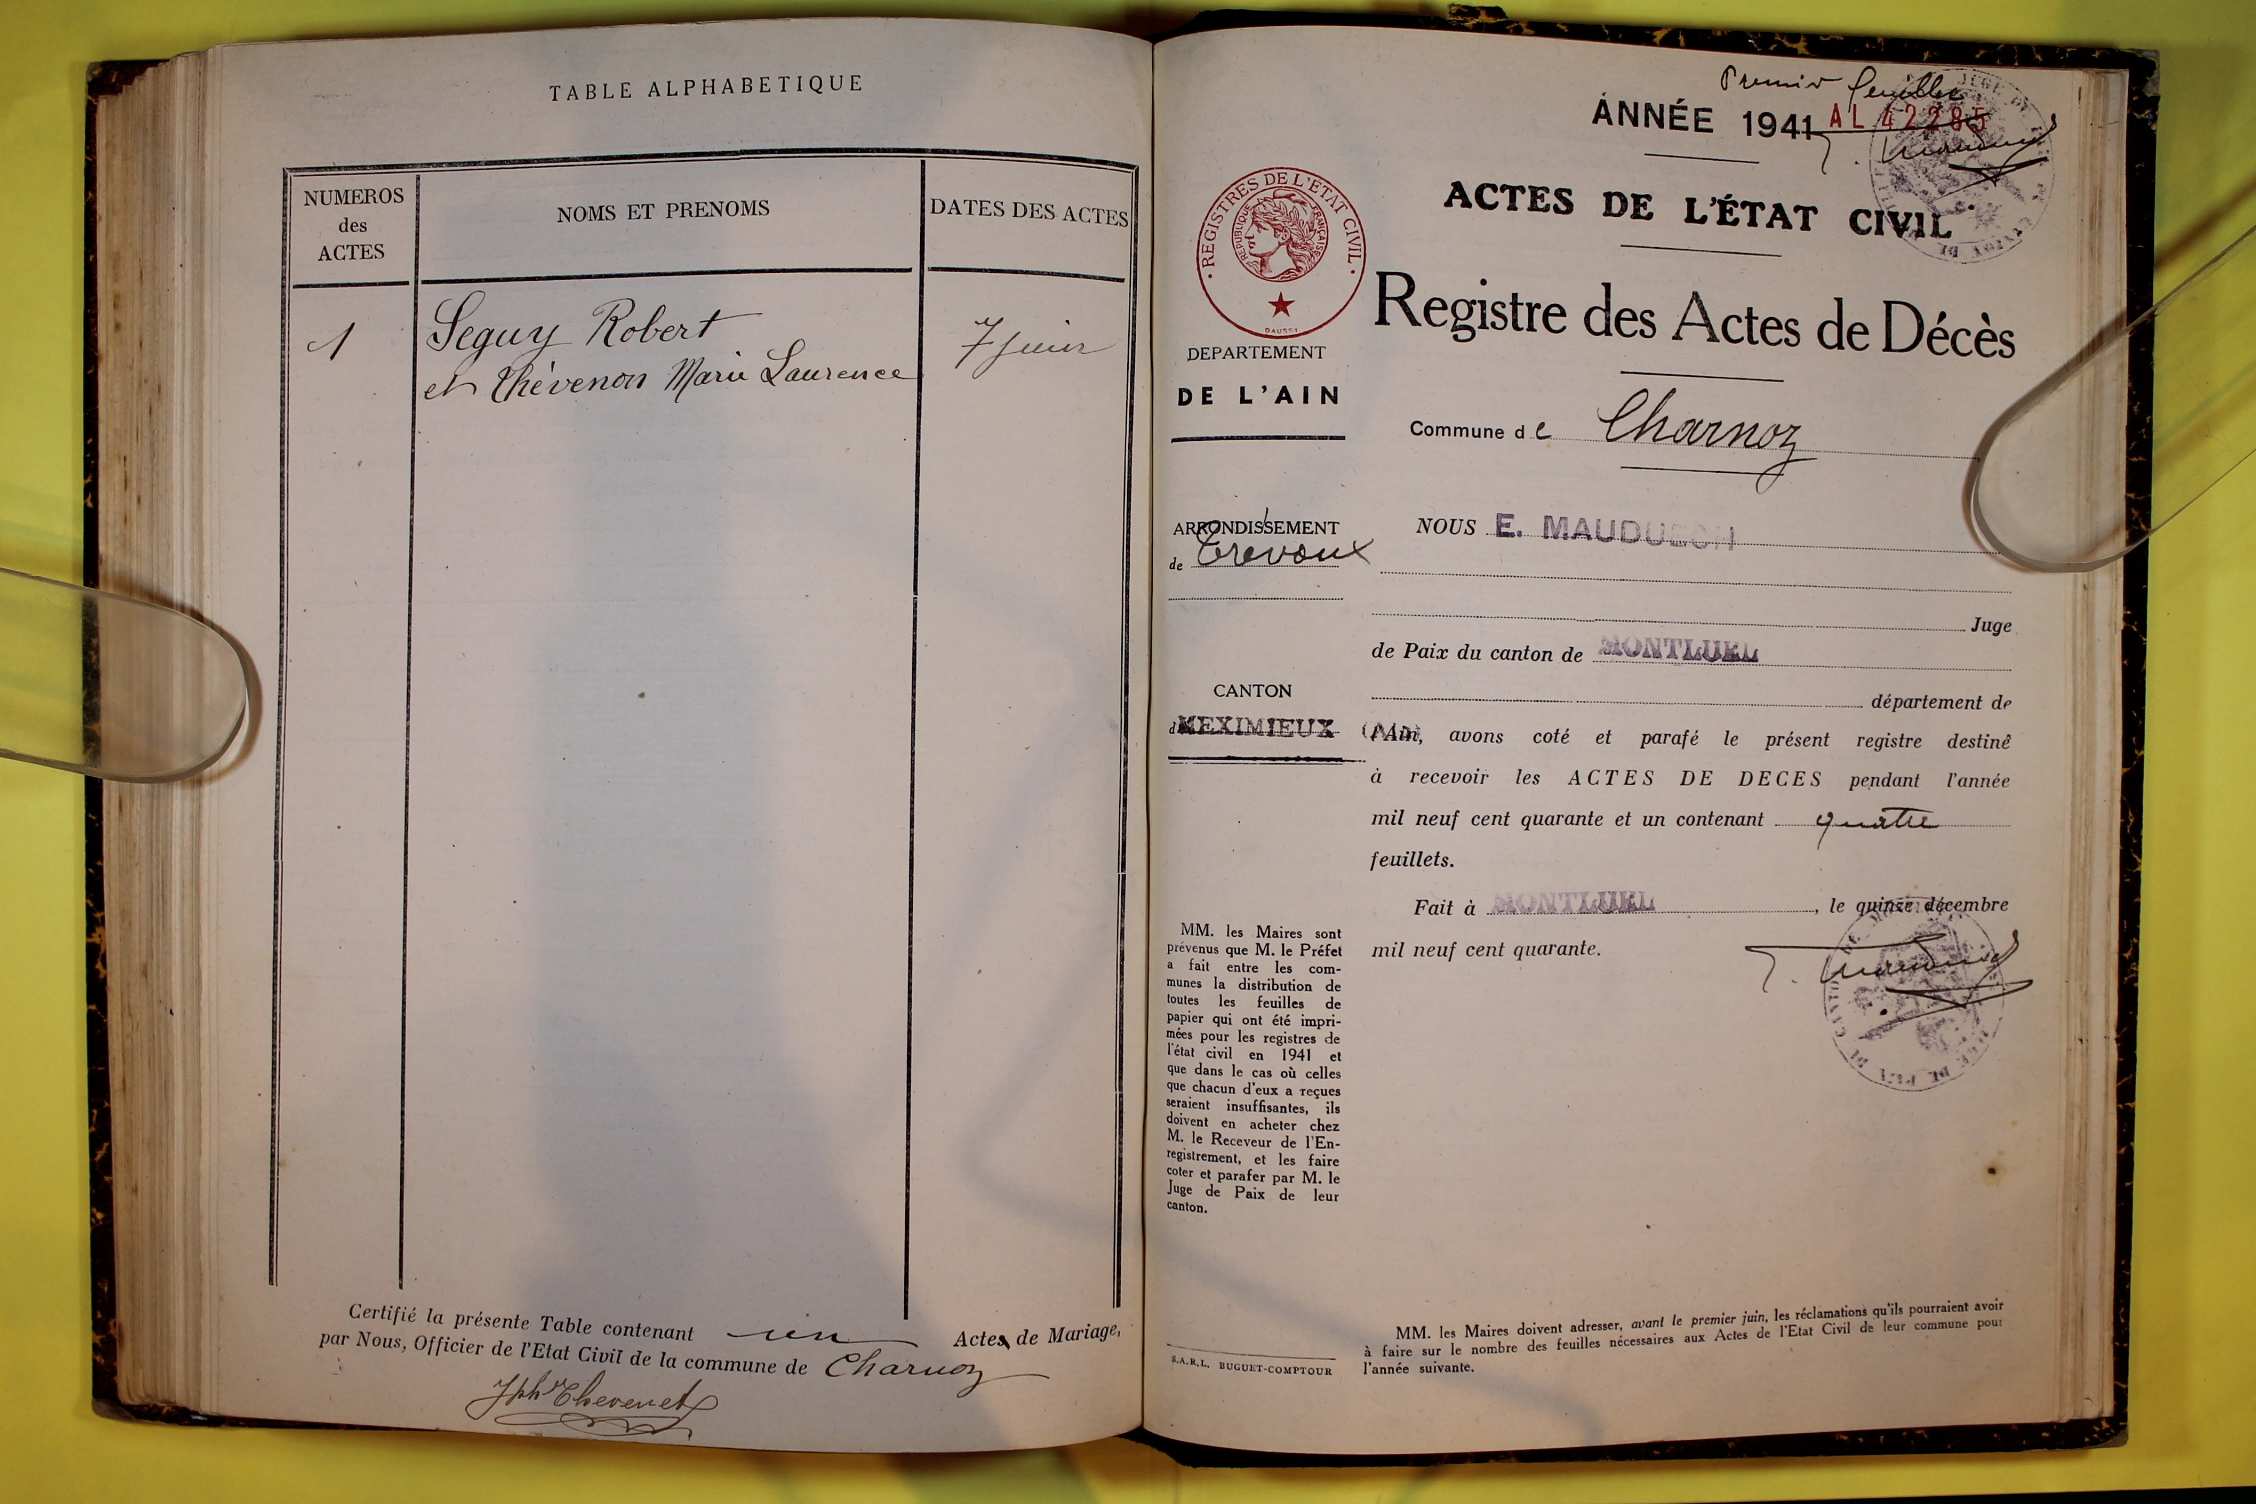 TABLE ALPHABETIQUE
NUMEROS
des
ACTES
NOMS ET PRENOMS
DATES DES ACTES
1
Seguy Robert
et Thévenon Marie Laurence
7 juin
Certifié la présente Table contenant un Actes de Mariage,
par Nous, Officier de l'Etat Civil de la commune de Charnoz
Jph Thevenet
Premier feuillet
ANNÉE 1941
AL 42285
ACTES DE L'ÉTAT CIVIL
Registre des Actes de Décès
REGISTRES DE L'ETAT CIVIL
REPUBLIQUE FRANÇAISE
DAUSSY
DEPARTEMENT
DE L'AIN
Commune de Charnoz
ARRONDISSEMENT
de Trévoux
CANTON
MEXIMIEUX (Ain)
NOUS E. MAUDUECH
Juge
de Paix du canton de MONTLUEL
département de
l'Ain, avons coté et parafé le présent registre destiné
à recevoir les ACTES DE DECES pendant l'année
mil neuf cent quarante et un contenant quatre
feuillets.
Fait à MONTLUEL, le quinze décembre
mil neuf cent quarante.
MM. les Maires sont
prévenus que M. le Préfet
a fait entre les com-
munes la distribution de
toutes les feuilles de
papier qui ont été impri-
mées pour les registres de
l'état civil en 1941 et
que dans le cas où celles
que chacun d'eux a reçues
seraient insuffisantes, ils
doivent en acheter chez
M. le Receveur de l'En-
registrement, et les faire
coter et parafer par M. le
Juge de Paix de leur
canton.
S.A.R.L. BUGUET-COMPTOUR
MM. les Maires doivent adresser, avant le premier juin, les réclamations qu'ils pourraient avoir
à faire sur le nombre des feuilles nécessaires aux Actes de l'Etat Civil de leur commune pour
l'année suivante.